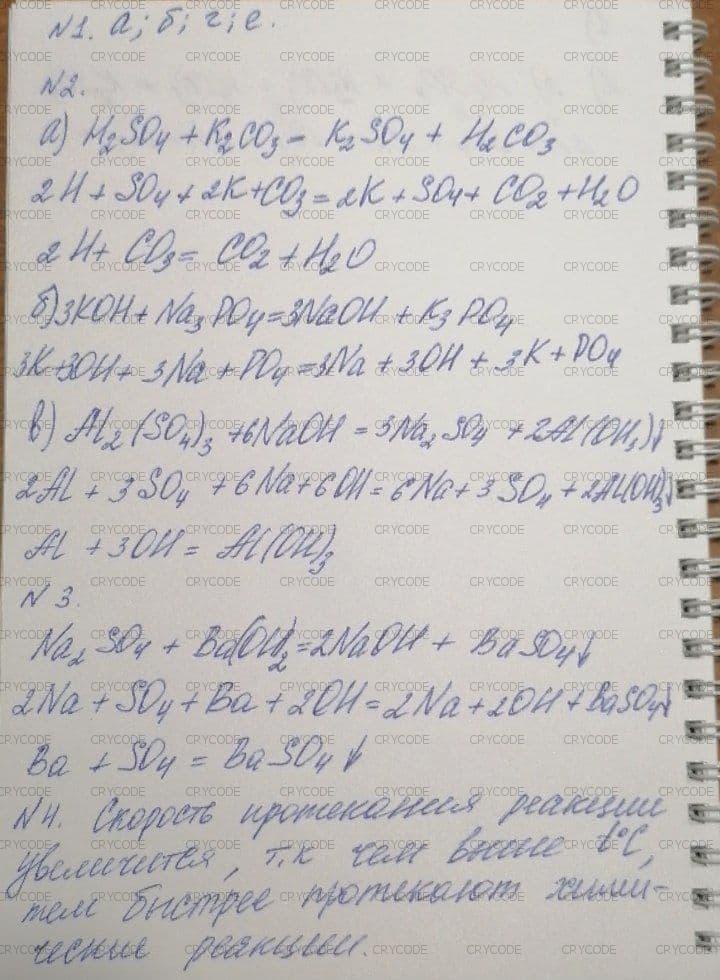 №1. а; б; г; е.
№2.
а) H2SO4 + K2CO3 = K2SO4 + H2CO3
2H + SO4 + 2K + CO3 = 2K + SO4 + CO2 + H2O
2H + CO3 = CO2 + H2O
б) 3KOH + Na3PO4 = 3NaOH + K3PO4
3K + 3OH + 3Na + PO4 = 3Na + 3OH + 3K + PO4
в) Al2(SO4)3 + 6NaOH = 3Na2SO4 + 2Al(OH3)↓
2Al + 3SO4 + 6Na + 6OH = 6Na + 3SO4 + 2Al(OH)3↓
Al + 3OH = Al(OH)3
№3.
Na2SO4 + Ba(OH)2 = 2NaOH + BaSO4↓
2Na + SO4 + Ba + 2OH = 2Na + 2OH + BaSO4↓
Ba + SO4 = BaSO4↓
№4. Скорость протекания реакции
увеличится, т.к чем выше t°C,
тем быстрее протекают хими-
ческие реакции.
CRYCODE